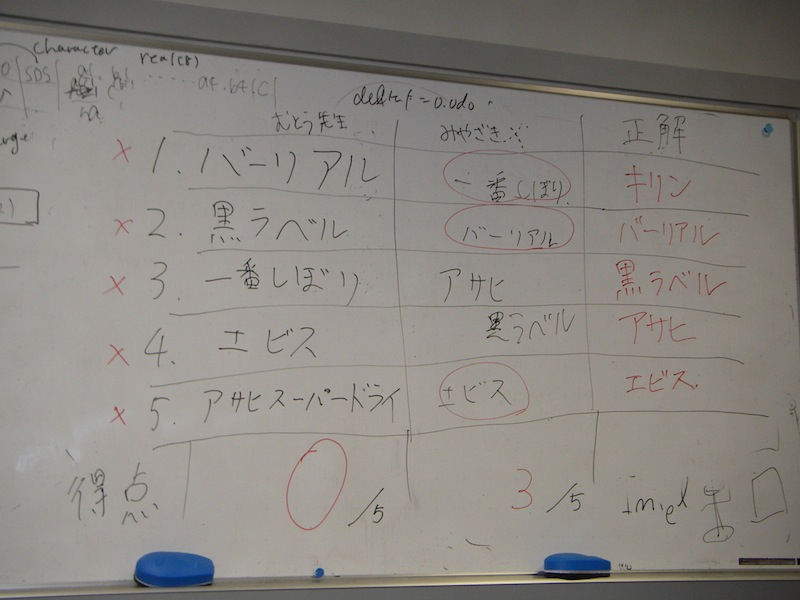 charactor real(8)
SDS
deltat = 0.0d0
むとう先生 みやざき 正解
× 1. バーリアル 一番しぼり キリン
× 2. 黒ラベル バーリアル バーリアル
× 3. 一番しぼり アサヒ 黒ラベル
× 4. エビス 黒ラベル アサヒ
× 5. アサヒスーパードライ エビス エビス
得点 0/5 3/5